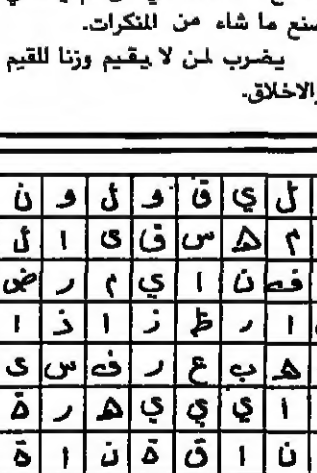 صنع ما شاء من المنكرات.
يضرب لمن لا يقيم وزنا للقيم
والاخلاق.
ل ي ق و ل و ن
م ه س ق ى ا ل
ف ن ا ي م ر ض
ا ر ظ ز ا ذ ا
ه ب ع ر ف س ى
ا ي ي ي ه ر ة
ن ا ق ة ن ا ة